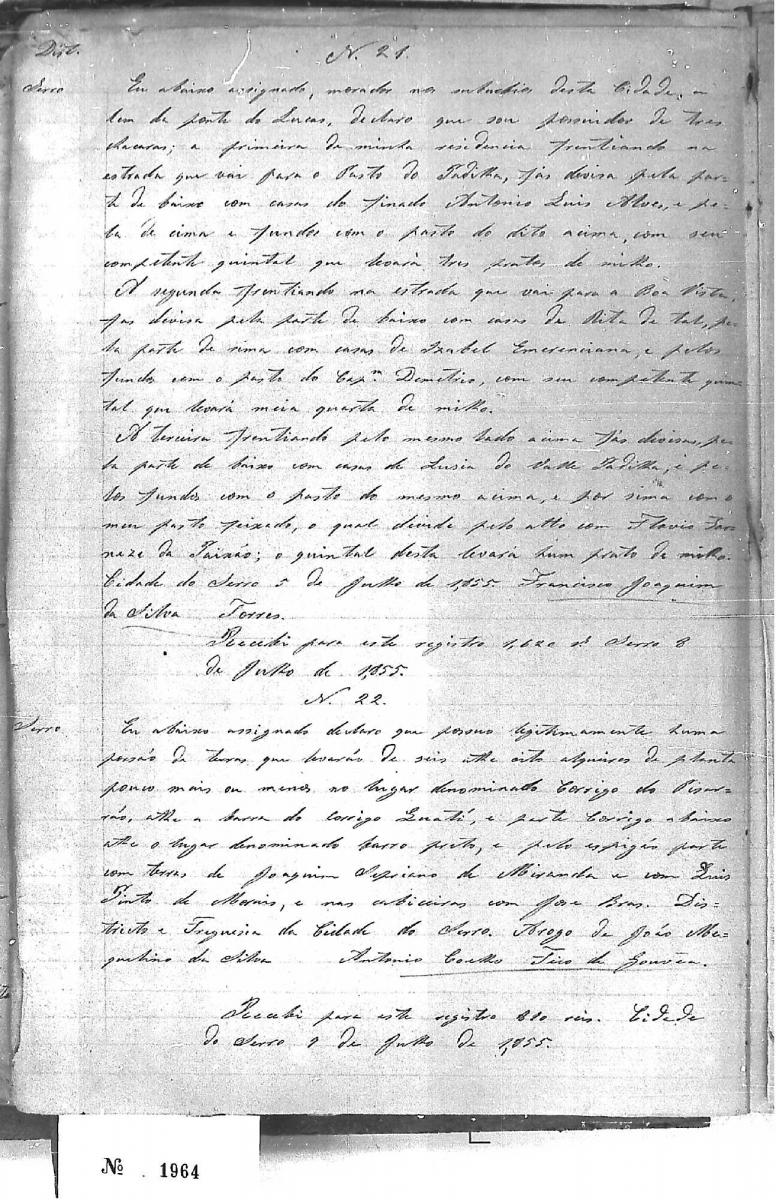 Dist.
N. 21.
Serro
Eu abaixo assignado, morador nos suburbios desta Cidade, a
lem da ponte do Lucas, declaro que sou possuidor de tres
chacaras; a primeira da minha residencia frentiando na
estrada que vai para o Pasto do Padilha, fas divisa pela par-
te de baixo com casas do finado Antonio Luis Alves, e pe-
la de cima e fundos com o pasto do dito acima, com seu
competente quintal que levará tres pratos de milho.
A segunda frentiando na estrada que vai para a Bôa Vista,
fas divisa pela parte de baixo com casas de Rita de tal, pe
la parte de sima com casas de Izabel Emerenciana, e pelos
fundos com o pasto do Cap.m Demetrio, com seu competente quin
tal que levará meia quarta de milho.
A terceira frentiando pelo mesmo lado acima fas divisas, pe
la parte de baixo com casas de Lusia do Valle Padilha, e pe-
los fundos com o pasto do mesmo acima, e por sima com o
meu pasto feixado, o qual divide pelo alto com Flavio Far
naze da Paixão; o quintal desta levará hum prato de milho.
Cidade do Serro 5 de Julho de 1,855. Francisco Joaquim
da Silva Torres.
Recebi para este registro 1,620 rs. Serro 8
de Julho de 1,855.
N. 22.
Serro
Eu abaixo assignado declaro que possuo legitimamente huma
porsão de terras que levarão de seis athe oito alqueires de planta
pouco mais ou menos no lugar denominado Corrigo do Pisar-
rão, athe a barra do corrigo Quati, e parte Corrigo abaixo
athe o lugar denominado barro preto, e pelo espigão parte
com terras de Joaquim Sipriano de Miranda e com Luis
Pinto de Morais, e nas cabiceiras com Jose Bras. Dis-
tricto e Freguesia da Cidade do Serro. Arogo de João Ma-
quelino da Silva Antonio Coelho Tico de Gouvêa.
Recebi para este registro 810 reis. Cidade
do Serro 9 de Julho de 1,855.
Nº 1964